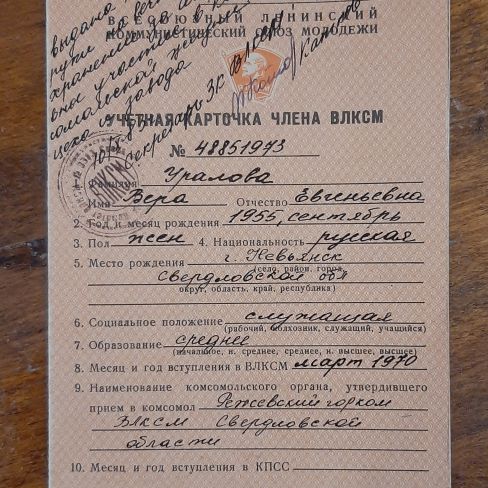 ВСЕСОЮЗНЫЙ ЛЕНИНСКИЙ
КОММУНИСТИЧЕСКИЙ СОЮЗ МОЛОДЕЖИ
выдана
пути
хранением
участие в
комсомольской жизни
цеха и завода
Секретарь ЗК ВЛКСМ
УЧЕТНАЯ КАРТОЧКА ЧЛЕНА ВЛКСМ
№ 48851973
ВЛКСМ
1. Фамилия Уралова
Имя Вера Отчество Евгеньевна
2. Год и месяц рождения 1955, сентябрь
3. Пол жен 4. Национальность русская
5. Место рождения г. Невьянск
(село, район, город,
Свердловской обл
округ, область, край, республика)
6. Социальное положение служащая
(рабочий, колхозник, служащий, учащийся)
7. Образование среднее
(начальное, н. среднее, среднее, н. высшее, высшее)
8. Месяц и год вступления в ВЛКСМ март 1970
9. Наименование комсомольского органа, утвердившего
прием в комсомол Режевский горком
ВЛКСМ Свердловской
области
10. Месяц и год вступления в КПСС